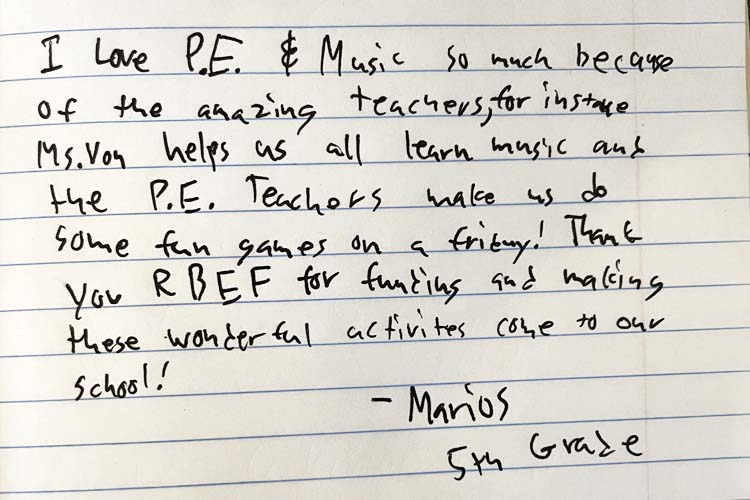 I Love P.E. & Music so much because
of the amazing teachers, for instance
Ms. Von helps us all learn music and
the P.E. Teachers make us do
some fun games on a friday! Thank
you RBEF for funding and making
these wonderful activites come to our
school!
- Marios
5th Grade